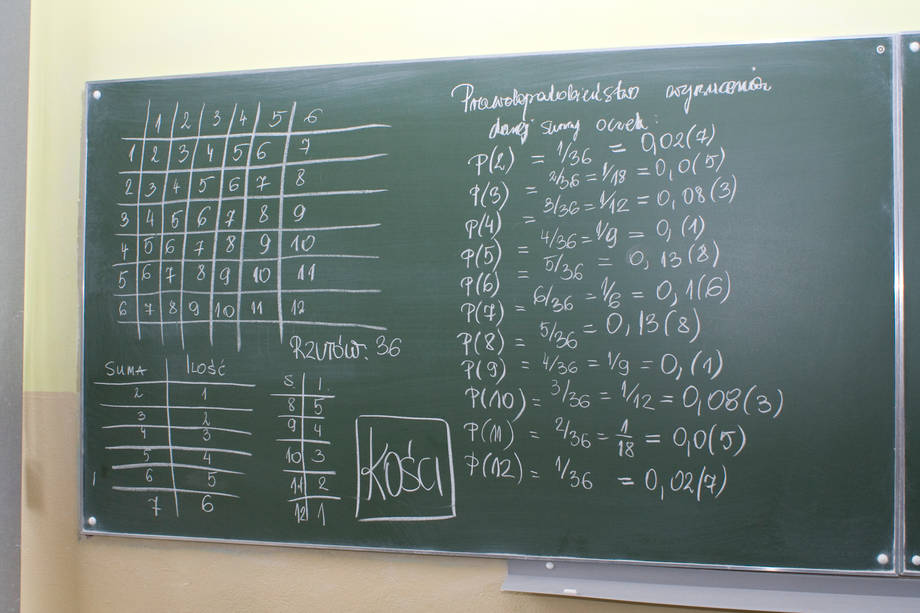 1 2 3 4 5 6
1 2 3 4 5 6 7
2 3 4 5 6 7 8
3 4 5 6 7 8 9
4 5 6 7 8 9 10
5 6 7 8 9 10 11
6 7 8 9 10 11 12
Rzutów: 36
SUMA ILOŚĆ
2 1
3 2
4 3
5 4
6 5
7 6
S I.
8 5
9 4
10 3
11 2
12 1
KOŚCI
Prawdopodobieństwo wyrzucenia
danej sumy oczek:
P(2) = 1/36 = 0,02(7)
P(3) = 2/36 = 1/18 = 0,0(5)
P(4) = 3/36 = 1/12 = 0,08(3)
P(5) = 4/36 = 1/9 = 0,(1)
P(6) = 5/36 = 0,13(8)
P(7) = 6/36 = 1/6 = 0,1(6)
P(8) = 5/36 = 0,13(8)
P(9) = 4/36 = 1/9 = 0,(1)
P(10) = 3/36 = 1/12 = 0,08(3)
P(11) = 2/36 = 1/18 = 0,0(5)
P(12) = 1/36 = 0,02(7)